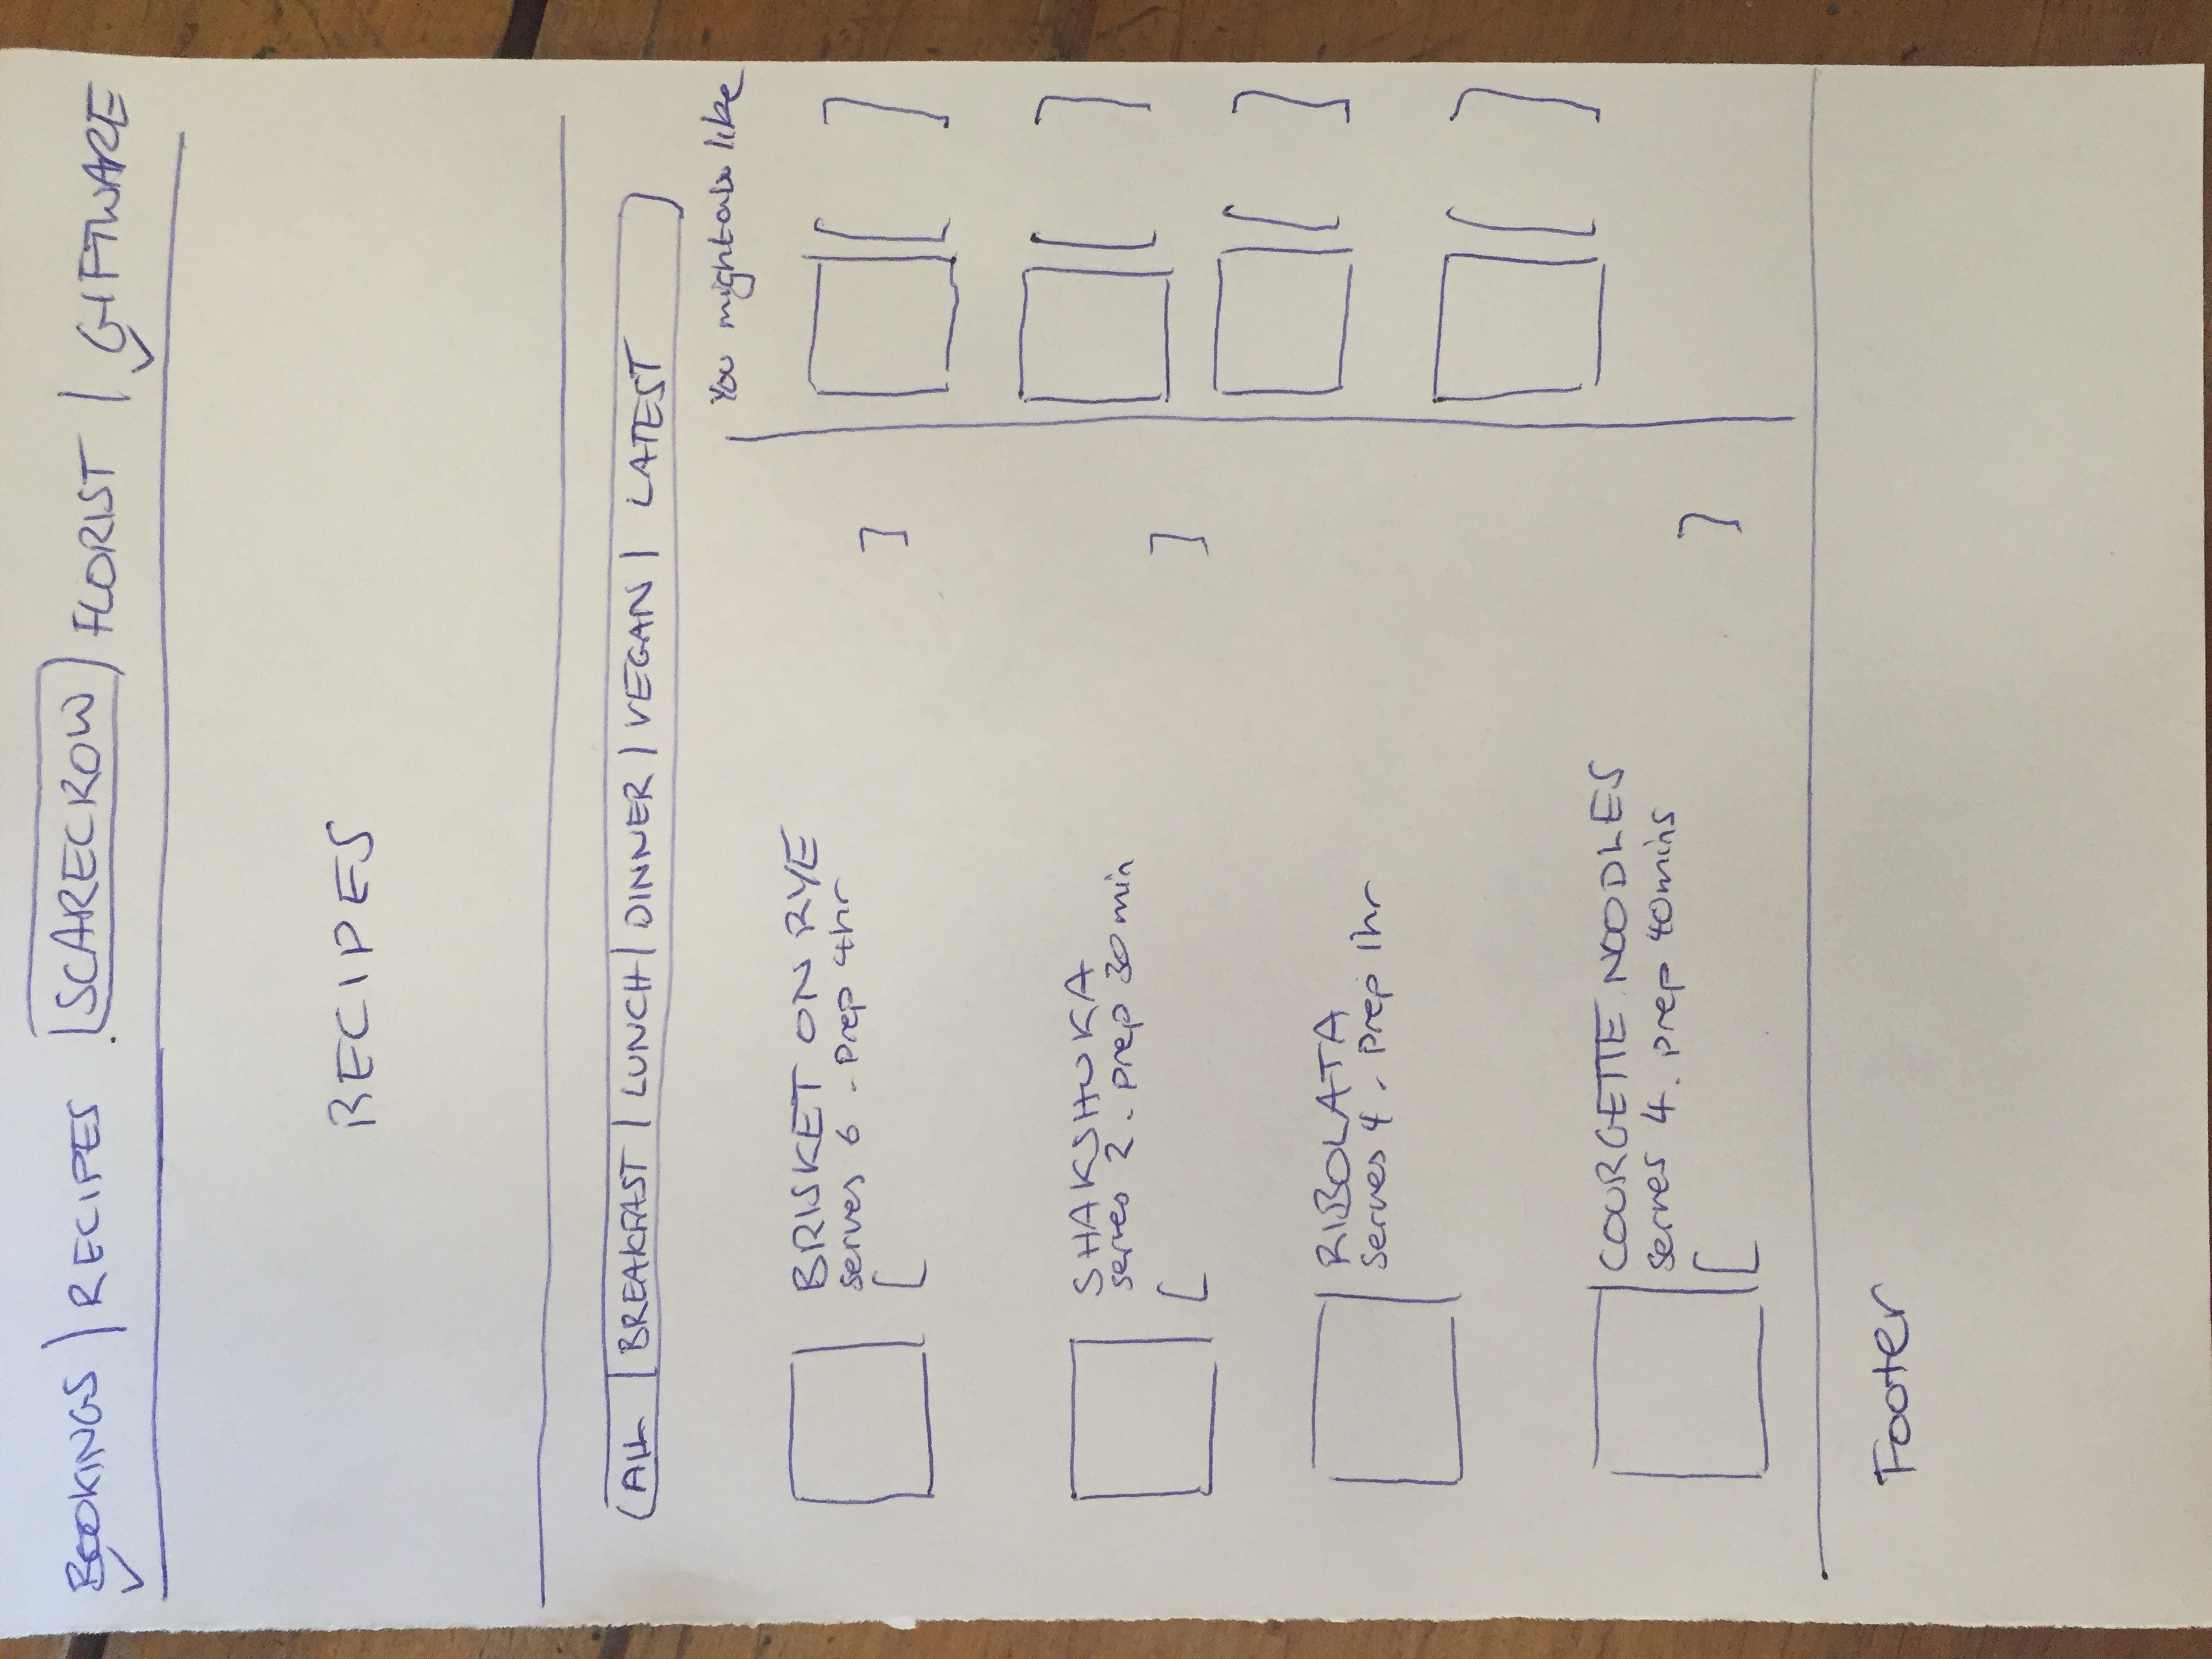 BOOKINGS | RECIPES SCARECROW FLORIST | GIFTWARE
RECIPES
ALL | BREAKFAST | LUNCH | DINNER | VEGAN | LATEST
You might also like
BRISKET ON RYE
serves 6 - Prep 4hr
[ ]
SHAKSHUKA
serves 2. prep 30 min
[ ]
RIBOLATA
serves 4 - Prep 1hr
COURGETTE NOODLES
serves 4. prep 40mins
[ ]
Footer